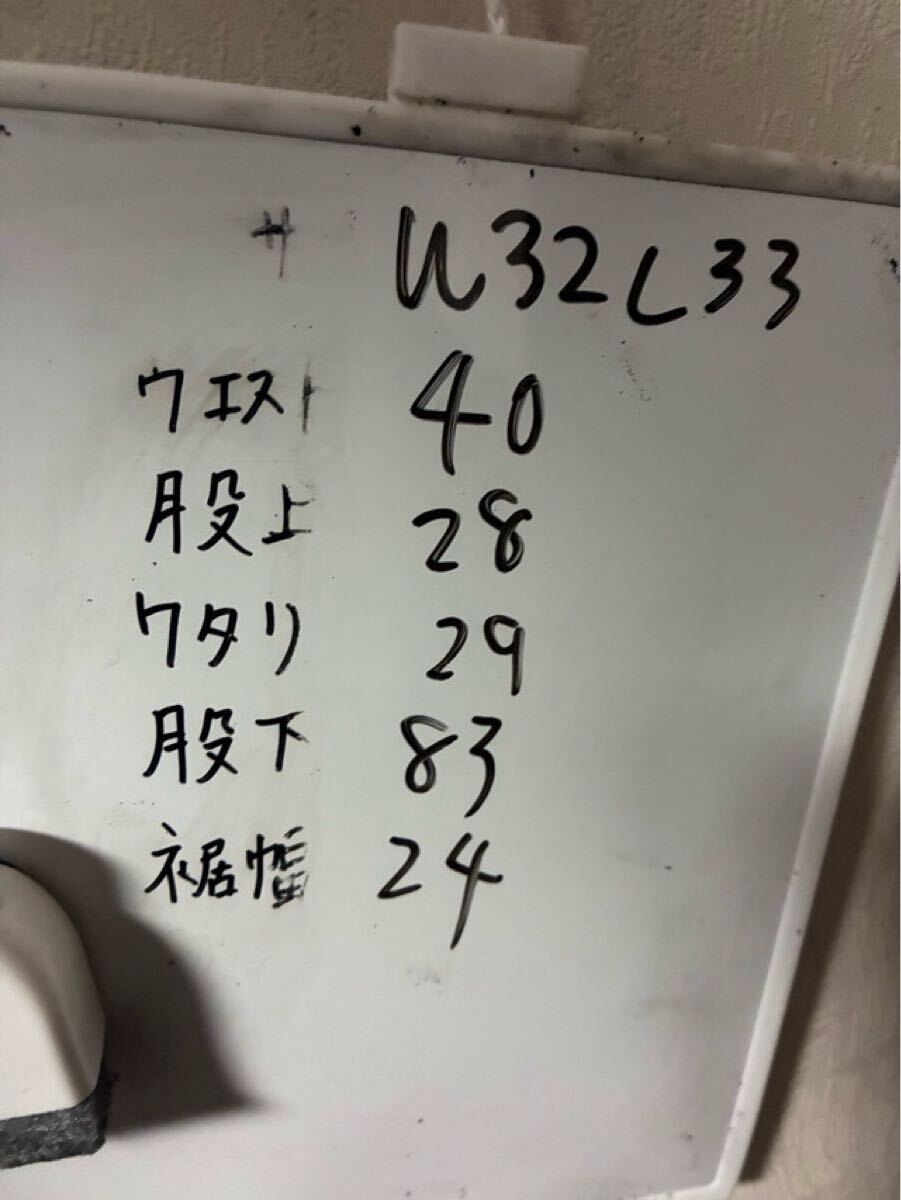 サ W32L33
ウエスト 40
股上 28
ワタリ 29
股下 83
裾幅 24